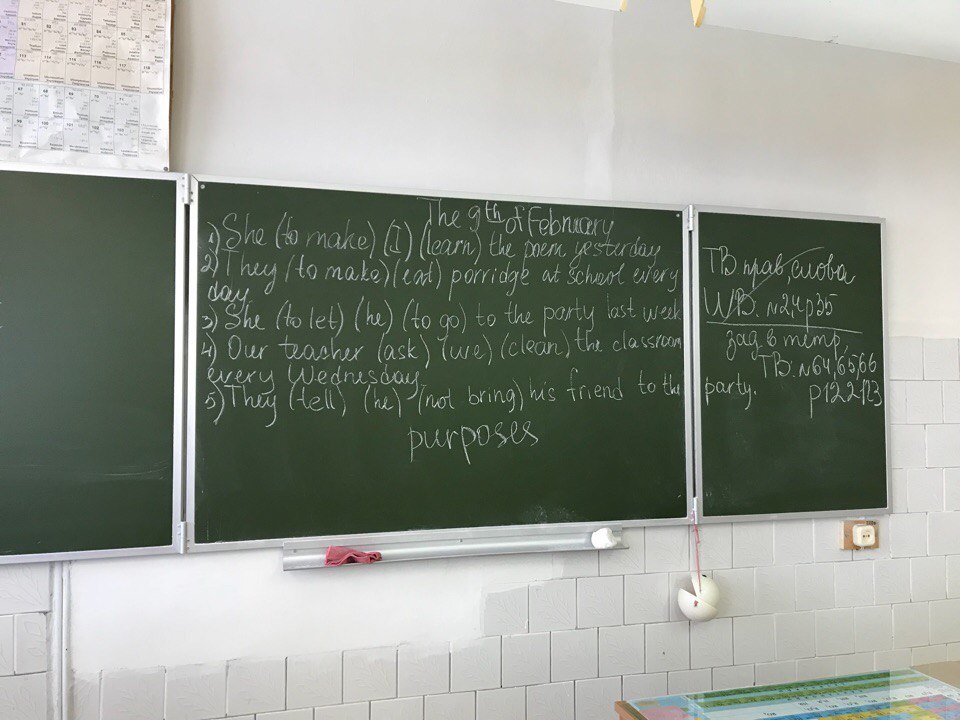 The 9th of February
1) She (to make) (I) (learn) the poem yesterday
2) They (to make) (eat) porridge at school every
day
3) She (to let) (he) (to go) to the party last week
4) Our teacher (ask) (we) (clean) the classroom
every Wednesday.
5) They (tell) (he) (not bring) his friend to the party.
purposes
TB прав, слова
WB. N2,4 p35
зад в тетр,
TB: N64,65,66
p122-123